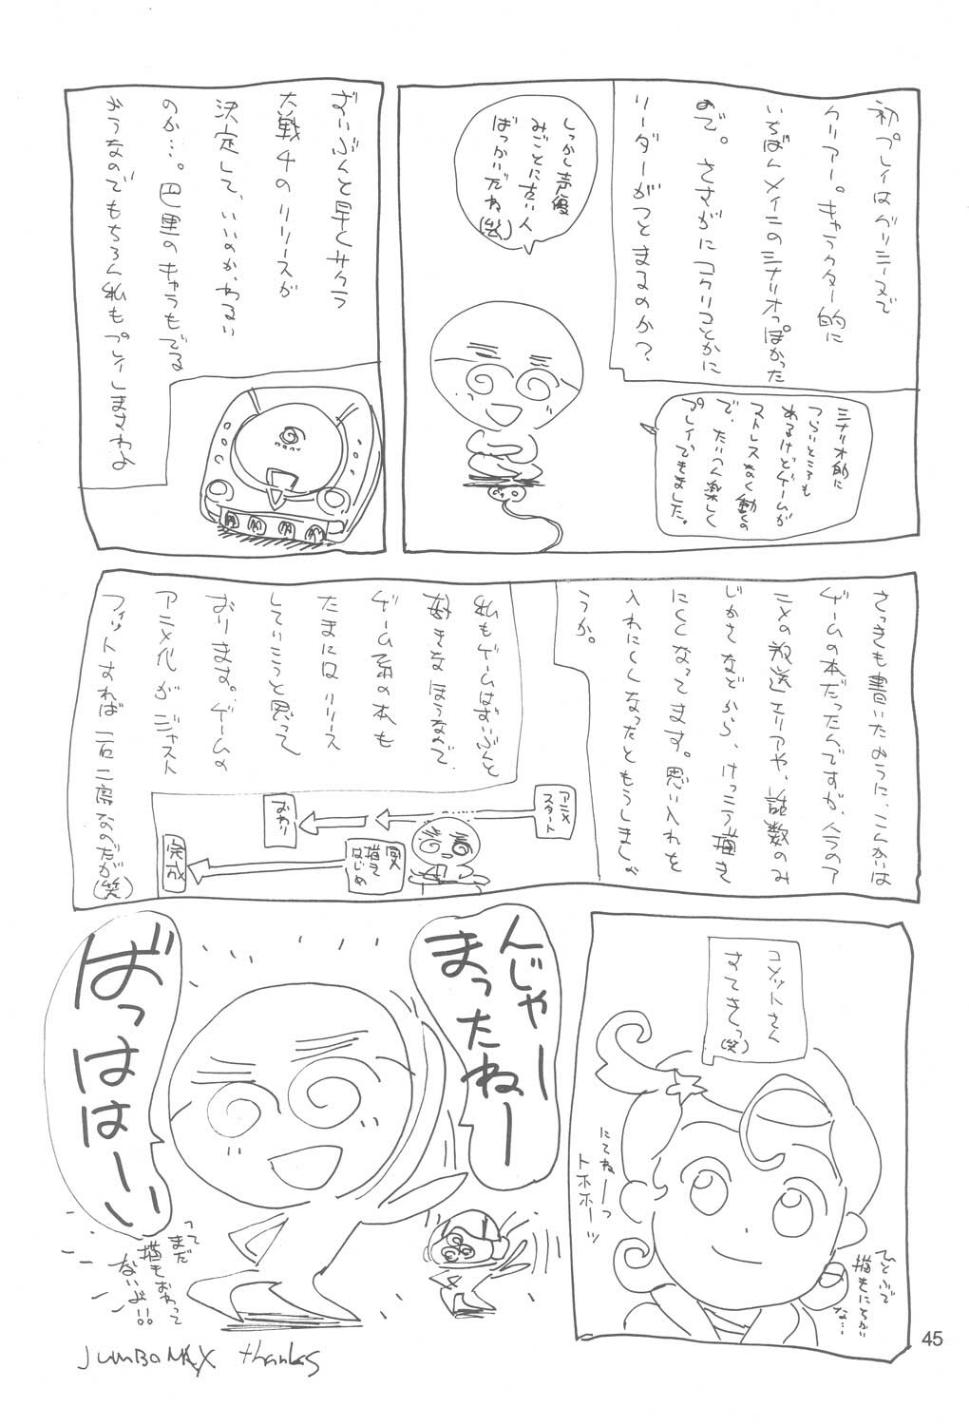 初プレイはグリシーヌで
クリアー。キャラクター的に
いちばんメインのシナリオっぽかった
ので。さすがにコクリコとかに
リーダーがつとまるのか?
しっかし声優
みごとに古い人
ばっかいだね
(笑)
シナリオ的に
つらいところも
あるけどゲームが
ストレスなく動くの
で、たいへん楽しく
プレイできました。
ずいぶんと早くサクラ
大戦4のリリースが
決定して、いいのか、わるい
のか…。巴里のキャラもでる
ようなのでもちろん私もプレイしますわよ
さっきも書いたように、こんかいは
ゲームの本だったんですが、今のア
ニメの放送エリアや、話数のみ
じかさなどから、けっこう描き
にくくなってます。思い入れを
入れにくくなったともうしましょ
うか。
私もゲームはずいぶんと
好きなほうなんで、
ゲーム系の本も
たまにはリリース
していこうと思って
おります。ゲームの
アニメ化がジャスト
フィットすれば一石二鳥なのだが(笑)
アニメ
スタート
おわり
描き
はじめ
完成
コメットさん
すてきっ(笑)
にてねーっ
トホホーッ
ひさしぶりで
な…
んじゃー
まったねー
ばっははーい
ってまだ
描きおわって
ないよ!!
JUMBOMAX thanks
45